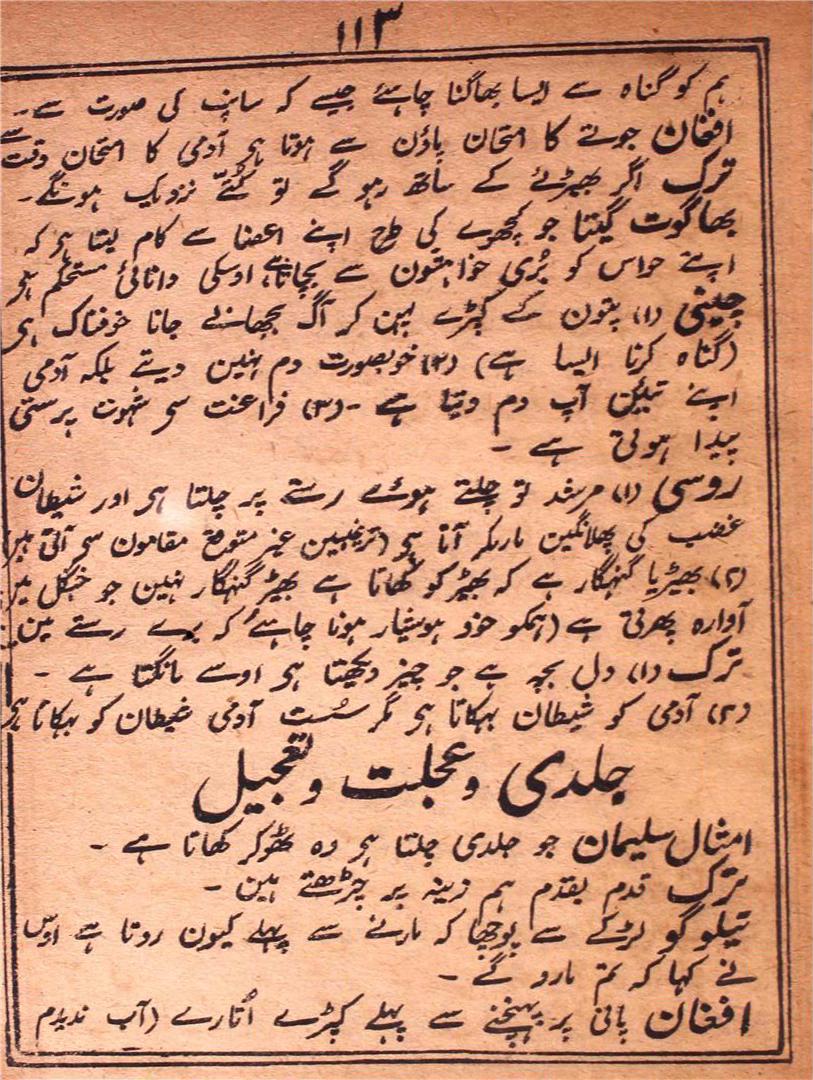 ١١٣
ہم کو گناہ سے ایسا بھاگنا چاہئے جیسے کہ سانپ کی صورت سے۔
افغان جوتے کا امتحان پاؤن سے ہوتا ہی آدمی کا امتحان وقت سے
ترک اگر بھیڑئے کے ساتھ رہو گے تو کُتّے نزدیک ہونگے۔
بھاگوت گیتا جو کچھوے کی طرح اپنے اعضا سے کام لیتا ہی کہ
اپنے حواس کو بُری خواہشون سے بچاتا ہے اوسکی دانائی مستحکم ہی
چینی (۱) پتون کے کپڑے پہن کر آگ بجھانے جانا خوفناک ہی
(گناہ کرنا ایسا ہے) (۲) خوبصورت دم نہین دیتے بلکہ آدمی
اپنے تیئن آپ دم دیتا ہے ۔ (۳) فراغت سی شہوت پرستی
پیدا ہوتی ہے ۔
روسی (۱) مرشد تو چلتے ہوئے رستے پر چلتا ہی اور شیطان
غضب کی پھلانگین مارکر آتا ہی (ترغیبین غیر متوقع مقامون سی آتی ہین)
(۲) بھیڑیا گنہگار ہے کہ بھیڑ کو کھاتا ہے بھیڑ گنہگار نہین جو جنگل مین
آوارہ پھرتی ہے (ہمکو خود ہوشیار ہونا چاہئے کہ برے رستے مین
ترک (۱) دل بچہ ہے جو چیز دیکھتا ہی اوسے مانگتا ہے ۔
(۲) آدمی کو شیطان بہکاتا ہی مگر سُست آدمی شیطان کو بہکاتا ہی
جلدی و عجلت و تعجیل
امثال سلیمان جو جلدی چلتا ہی وہ ٹھوکر کھاتا ہے ۔
ترک قدم بقدم ہم زینہ پر چڑھتے ہین ۔
تیلوگو لڑکے سے پوچھا کہ مارنے سے پہلے کیون روتا ہے اوس
نے کہا کہ تم مارو گے ۔
افغان پانی پر پہنچنے سے پہلے کپڑے اُتارے (آب ندیدم